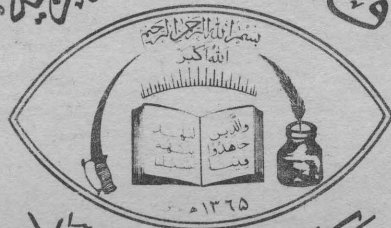 بسم الله الرحمن الرحيم
الله اكبر
والذين
جهدوا
فينا
لنهد
ينهم
سبلنا
١٣٦٥ هـ